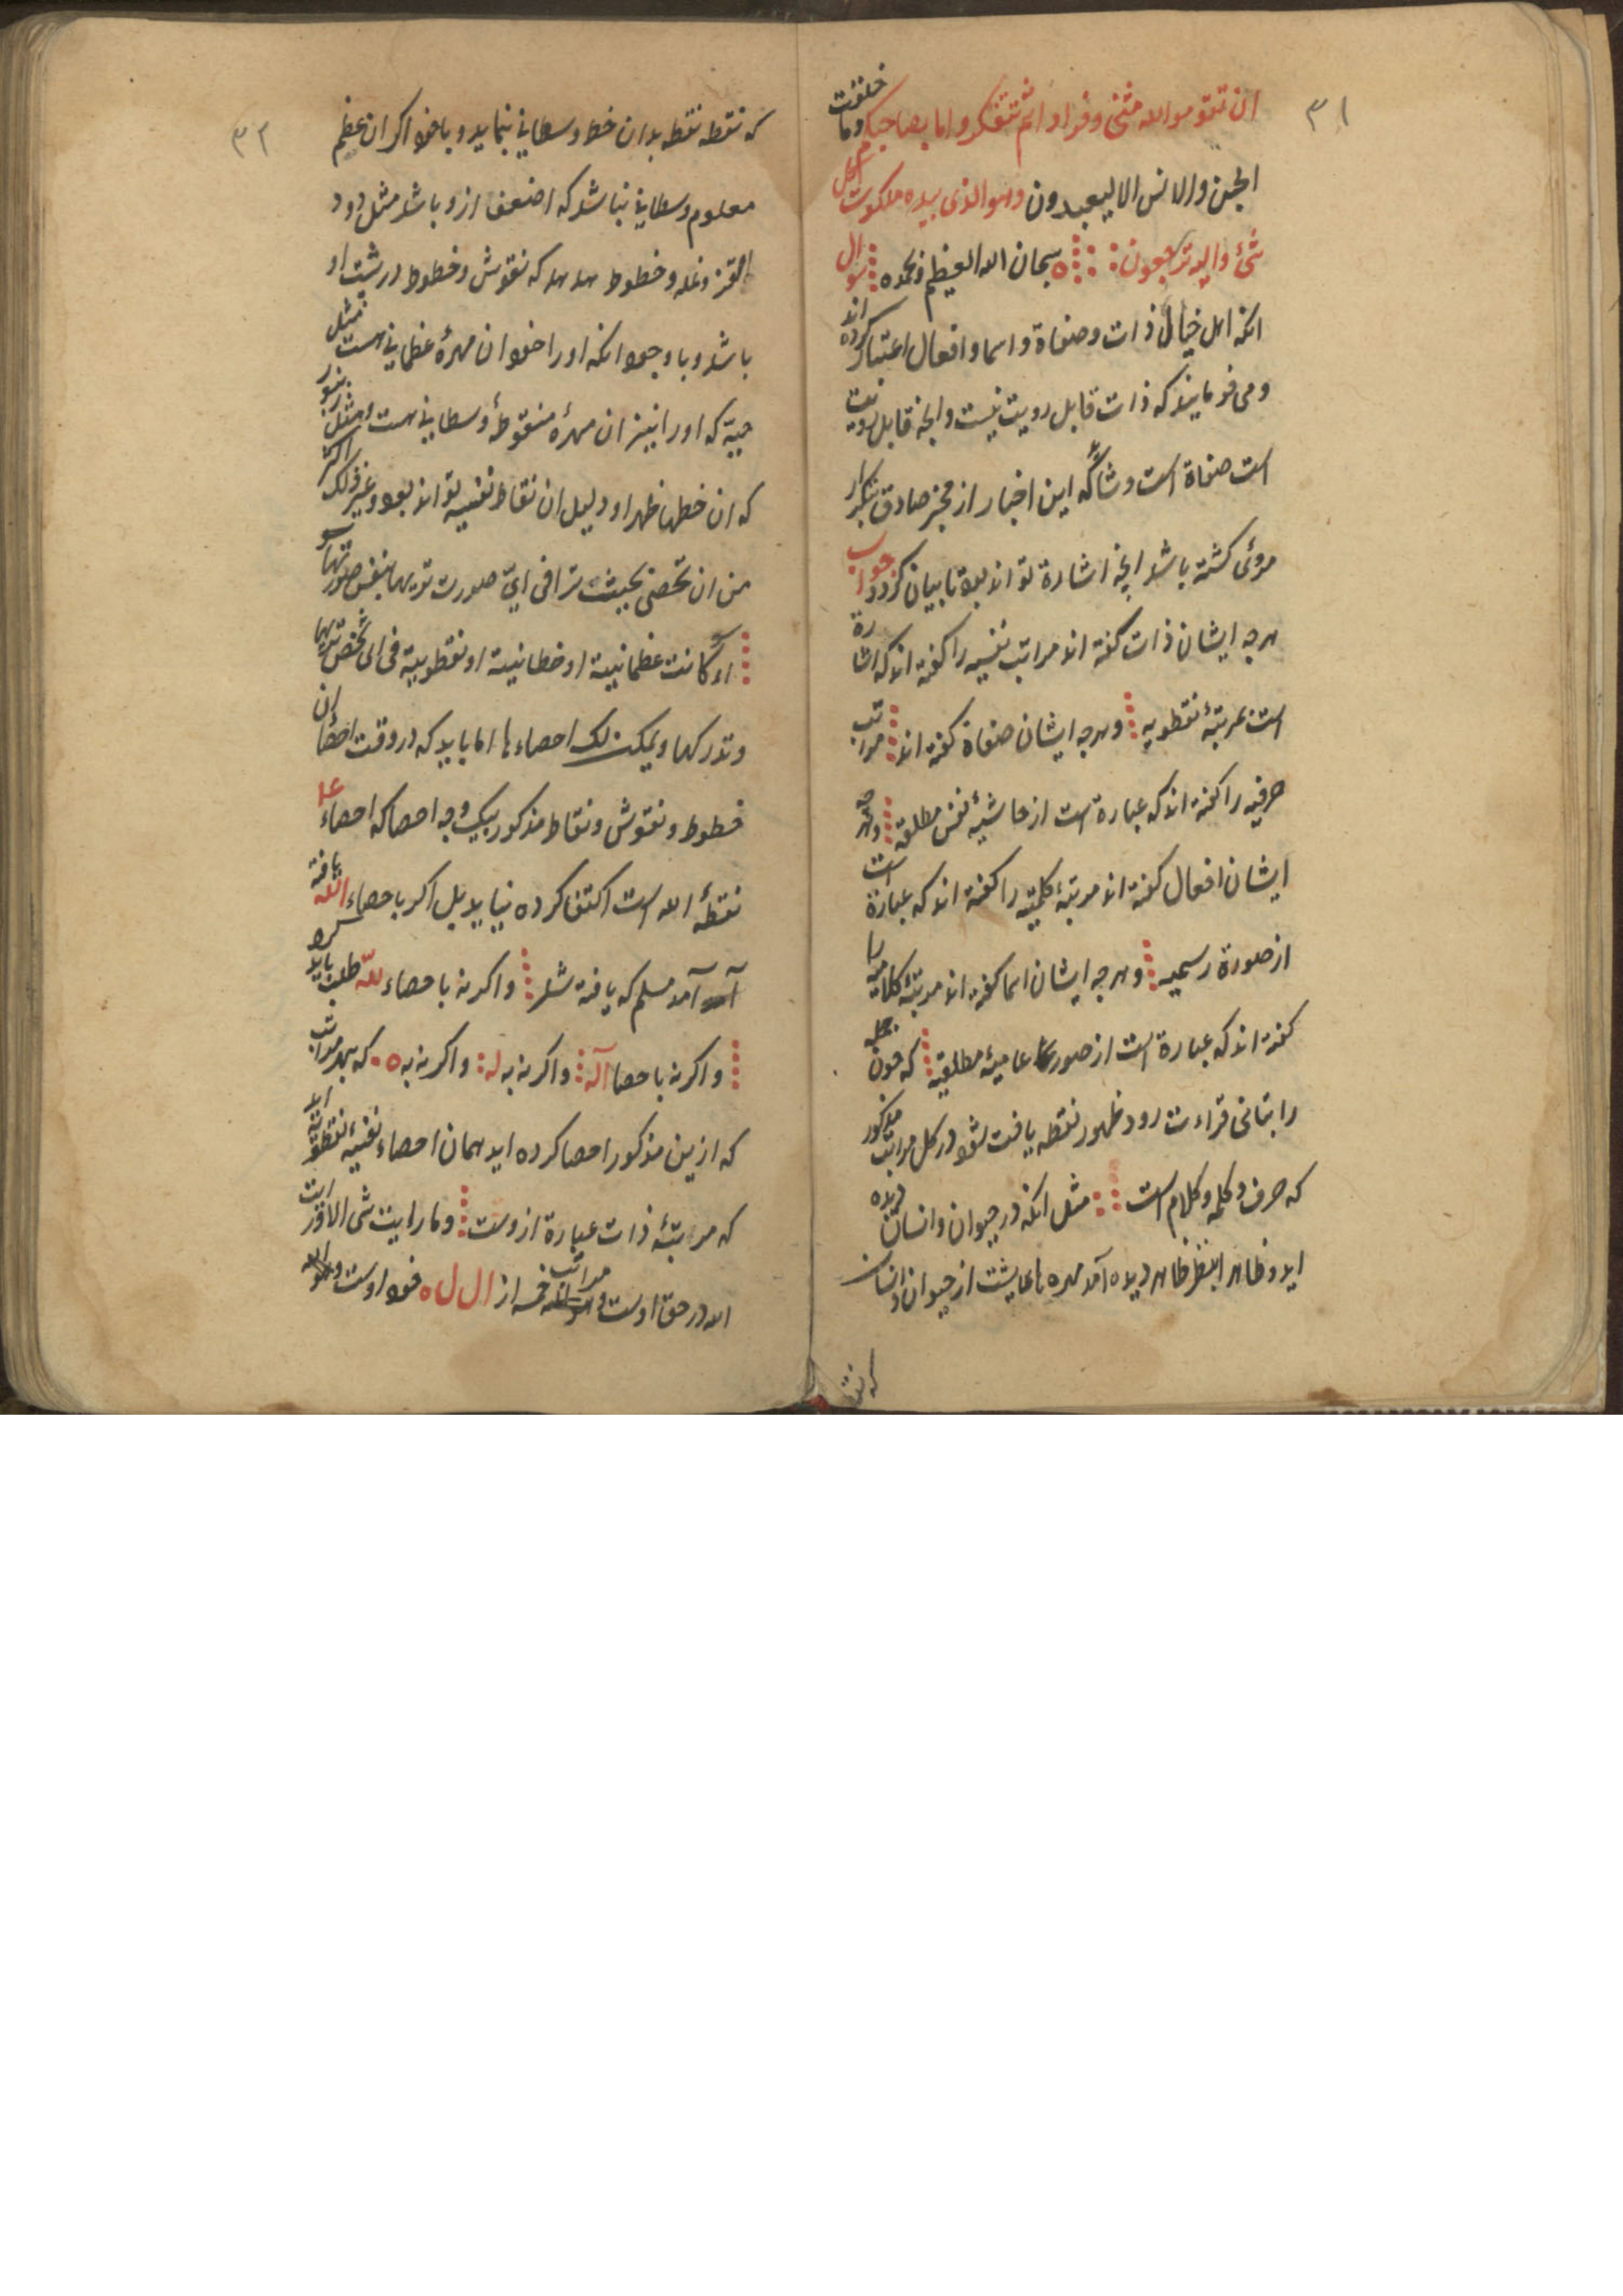 ٣١
ان تتقوموا لله مثنى و فرادا ثم تتفكروا ما بصاحبكم وما خلقت
الجن والانس الا ليعبدون وهو الذی بیده ملکوت کل
شئ والیه ترجعون سبحان الله العظیم و بحمده سوال
انکه اهل خیال ذات و صفاة و اسما و افعال اعتبار کرده اند
و می فرمایند که ذات قابل رویت نیست و انچه قابل رویت
است صفاة است و این اخبار از مخبر صادق بتکرار
مروی کشته باشد انچه اشارة تواند بود تا بیان کردد جواب
هرچه ایشان ذات کفته اند مراتب نفسیه را کفته اند که اشارة
است بمرتبهٔ نقطویه و هرچه ایشان صفاة کفته اند مراتب
حرفیه را کفته اند که عبارة است از حاشیهٔ نفس مطلقه و هرچه
ایشان افعال کفته اند مرتبهٔ کلمتیه را کفته اند که عبارة است
از صورة رسمیه و هرچه ایشان اسما کفته اند مرتبهٔ کلامیه را
کفته اند که عبارة است از صور عامیهٔ مطلقیه که چون جمله
را بتانی قراءت رود ظهور نقطه یافت شود در کل مراتب مذکور
که حرف و کلمه و کلام است مثل انکه در حیوان و انسان دیده
اید و ظاهر ابنظر ظاهر دیده آمد مهره ها پشت از حیوان و انسان
که نقطه
٣٢
که نقطه نقطه بدان خط وسطانی بنماید و باخود اکر ان عظم
معلوم وسطانی نباشد که اضعف ازو باشد مثل دود
القز و نمله و خطوط هد هد که نقوش و خطوط در پشت او
باشد و با وجود انکه او را خود ان مهرهٔ عظمانی هست مثل
حیة که او را نیز ان مهرهٔ منقوطهٔ وسطانی هست و مثل زنبور
که ان خط ظهر او دلیل ان نقاط نفسیه تواند بود و غیر ذلک اکثر
من ان تحصی بحیث ترا فی ایّ صورت تریها بنفس صورتها
او کانت عظمانیة او خطانیة او نقطوییة فی ای شخص تریها
و تدرکها و یمکن لک احصاءها اما باید که در وقت احصا ان
خطوط و نقوش و نقاط مذکور بیک وجه احصا که احصاء
نقطهٔ الله است اکتفا کرده نیاید بل اکر با حصاء الله یافته
آمد مسلم که یافته شد و اکر نه باحصاء لله طلب باید کرد
و اکر نه باحصا آله و اکر نه به له و اکر نه به ه که بهر مراتب
که ازین مذکور احصا کرده اید همان احصاء نفسیهٔ نقطویه اید
که مرتبهٔ ذات عبارة ازوست و ما رایت شی الا و رایت
الله در حق اوست و مراتب خمسه از ا ل ل ه خود اوست و هو الله